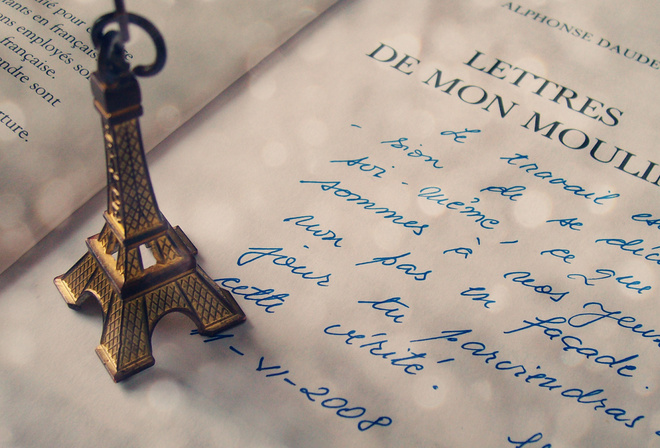 ié pour
ants en français
ns employés so
française.
endre sont
rture.
ALPHONSE DAUDE
LETTRES
DE MON MOULI
Le travail es
- sion de se déci
soi-même, ce que
sommes à nos yeux
non pas en façade.
jour tu parviendras
cette vérité.
11-VI-2008